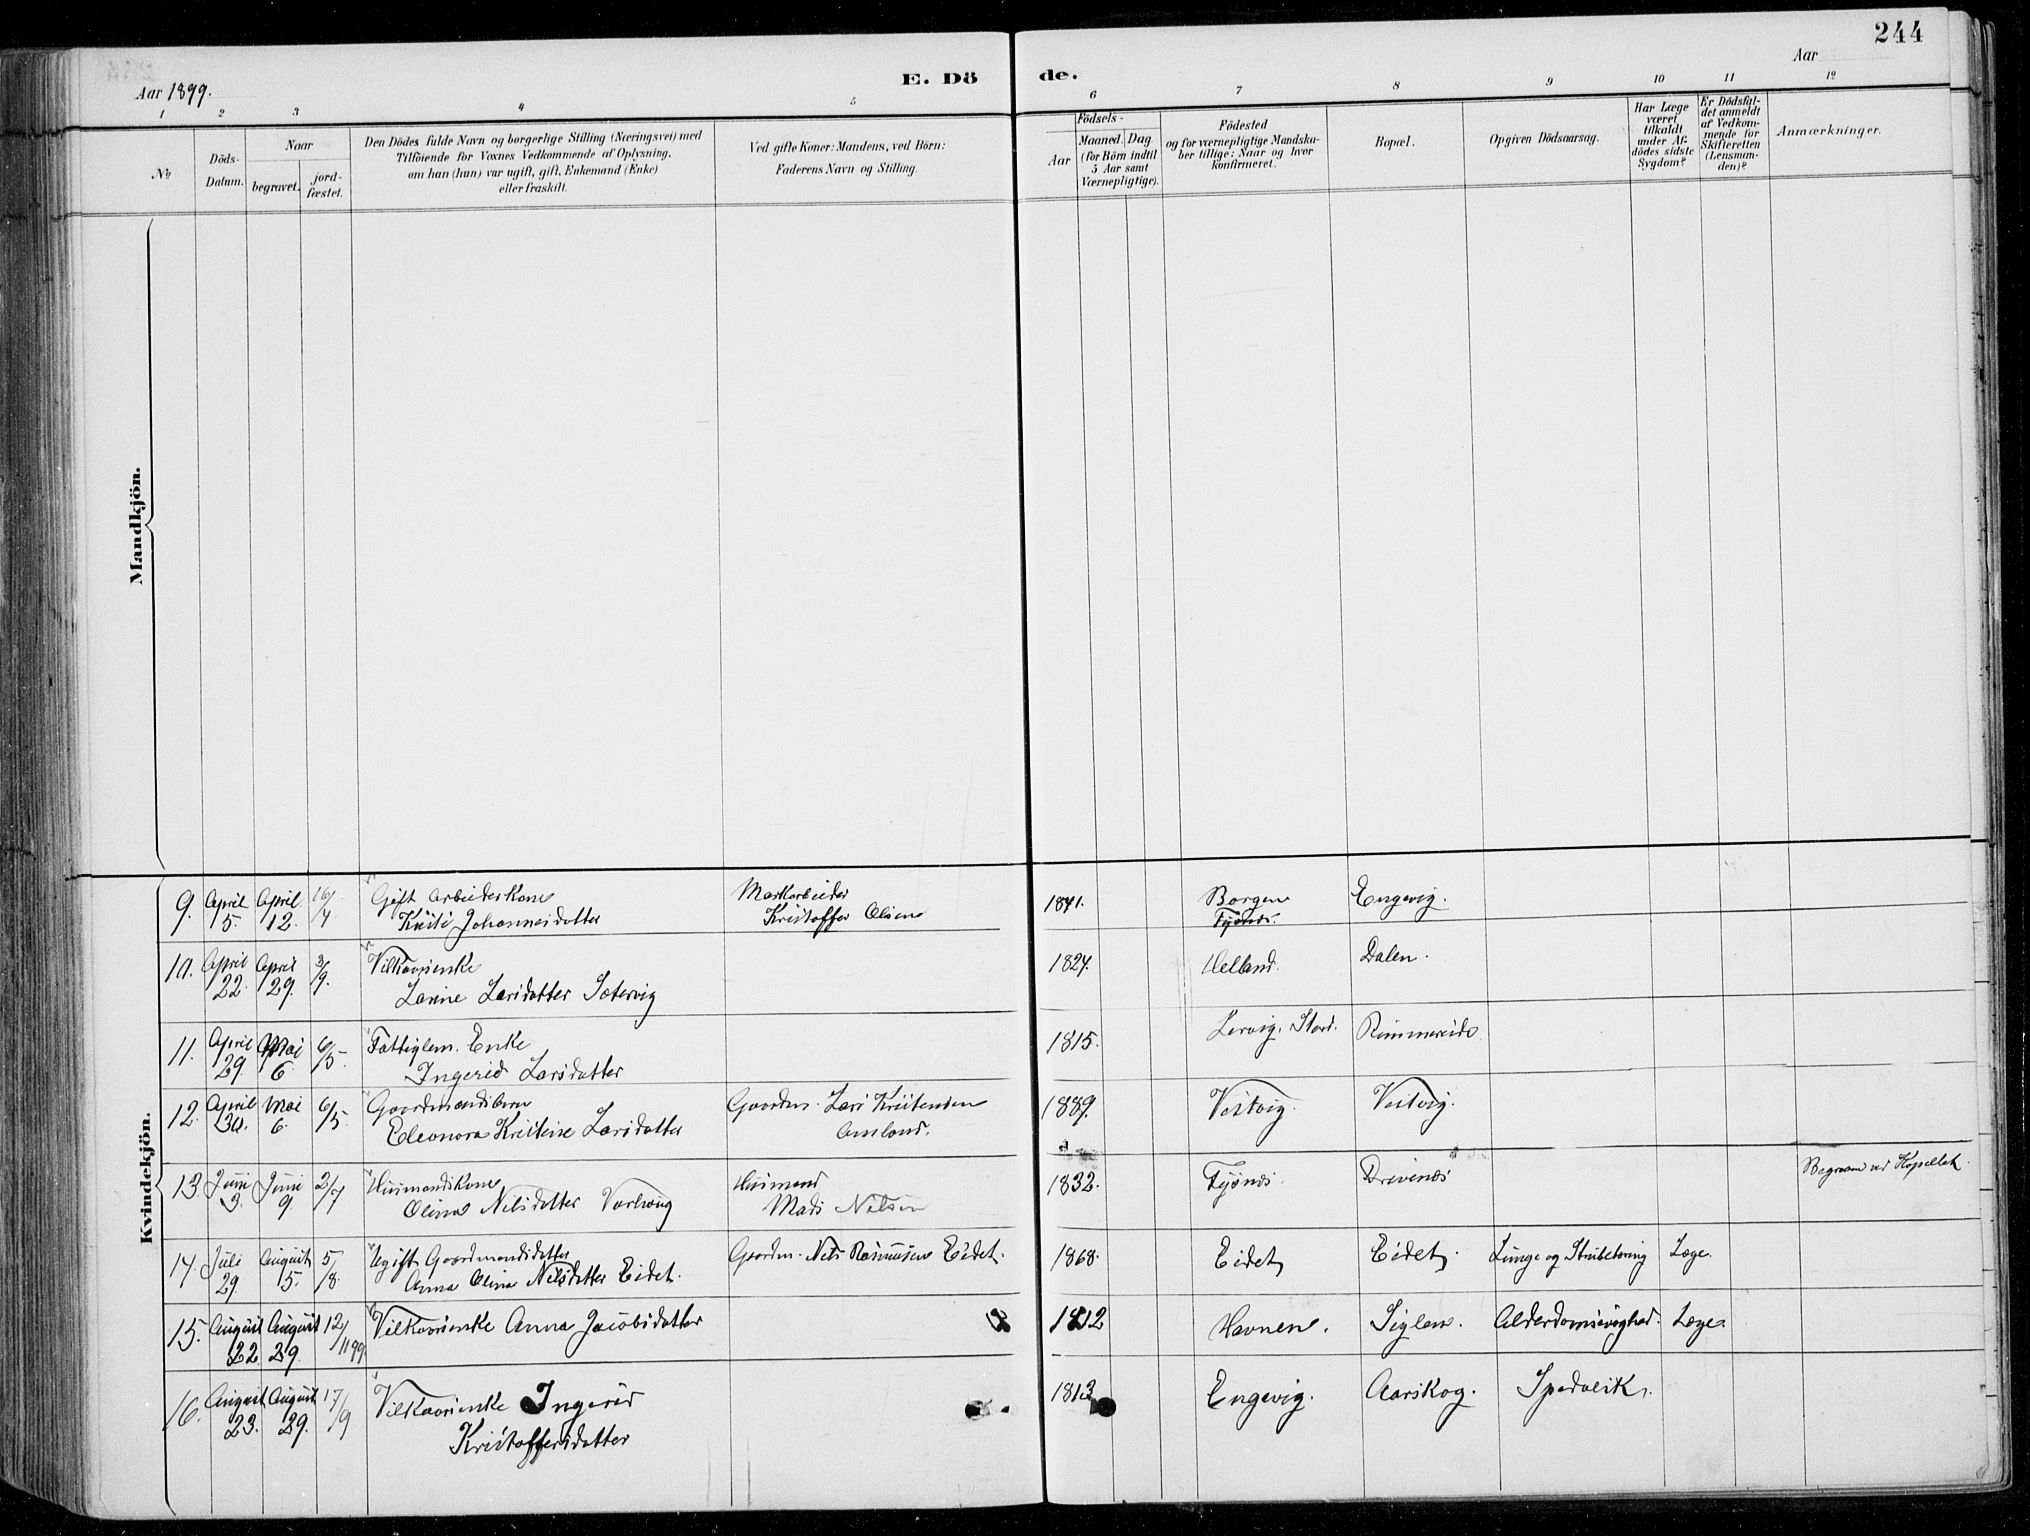 244
Aar 1899.
E. Dö
de.
Aar
1 2 3 4 5 6 7 8 9 10 11 12
№
Döds-
Datum.
Naar
begravet.
jord-
fæstet.
Den Dödes fulde Navn og borgerlige Stilling (Næringsvei) med
Tilföiende for Voxnes Vedkommende af Oplysning,
om han (hun) var ugift, gift, Enkemand (Enke)
eller fraskilt.
Ved gifte Koner: Mandens, ved Börn:
Faderens Navn og Stilling.
Födsels-
Aar
Maaned.
Dag
(for Börn indtil
5 Aar samt
Værnepligtige).
Födested
og for værnepligtige Mandska-
ber tillige: Naar og hvor
konfirmeret.
Bopæl.
Opgiven Dödsaarsag.
Har Læge
været
tilkaldt
under Af-
dödes sidste
Sygdom?
Er Dödsfal-
det anmeldt
af Vedkom-
mende for
Skifteretten
(Lensman-
den)?
Anmærkninger.
Mandkjön.
Kvindekjön.
9. April 5. April 12. 16/4. Gift Arbeiderkone
Kristi Johannesdatter
Markarbeider
Kristoffer Olsen
1841. Borgen
Fjönds.
Engevig.
10. April 22. April 29. 3/9. Vilkaarsenke
Larine Larsdatter Sætervig
1824. Helland. Dalen.
11. April 29. Mai 6. 6/5. Fattiglem. Enke
Ingerid Larsdatter
1815. Lervig. Stord. Rimmereide
12. April 30. Mai 6. 6/5. Gaardmandsbarn
Eleonora Kristine Larsdatter
Gaardm. Lars Kristensen
Amland.
1889. Vestvig. Vestvig.
13. Juni 3. Juni 9. 2/7 Husmandskone
Olina Nilsdatter
Husmand
Mads Nilsen
1832. Fjönds. Drevenes
Begraven ved Kapellet.
14. Juli 29. August 5. 5/8. Ugift Gaardmandsdatter
Anna Olina Nilsdatter Eidet.
Gaardm. Nils Rasmussen Eidet.
1868. Eidet Eidet. Lunge og Strubetæring Læge.
15. August 22. August 29. 12/11 99. Vilkaarsenke Anna Jacobsdatter
1812 Havnen. Siglen. Alderdomssvaghed. Læge.
16. August 23. August 29. 17/9 Vilkaarsenke Ingerid
Kristoffersdatter
1813 Engevig. Aarskog. Spedalsk.